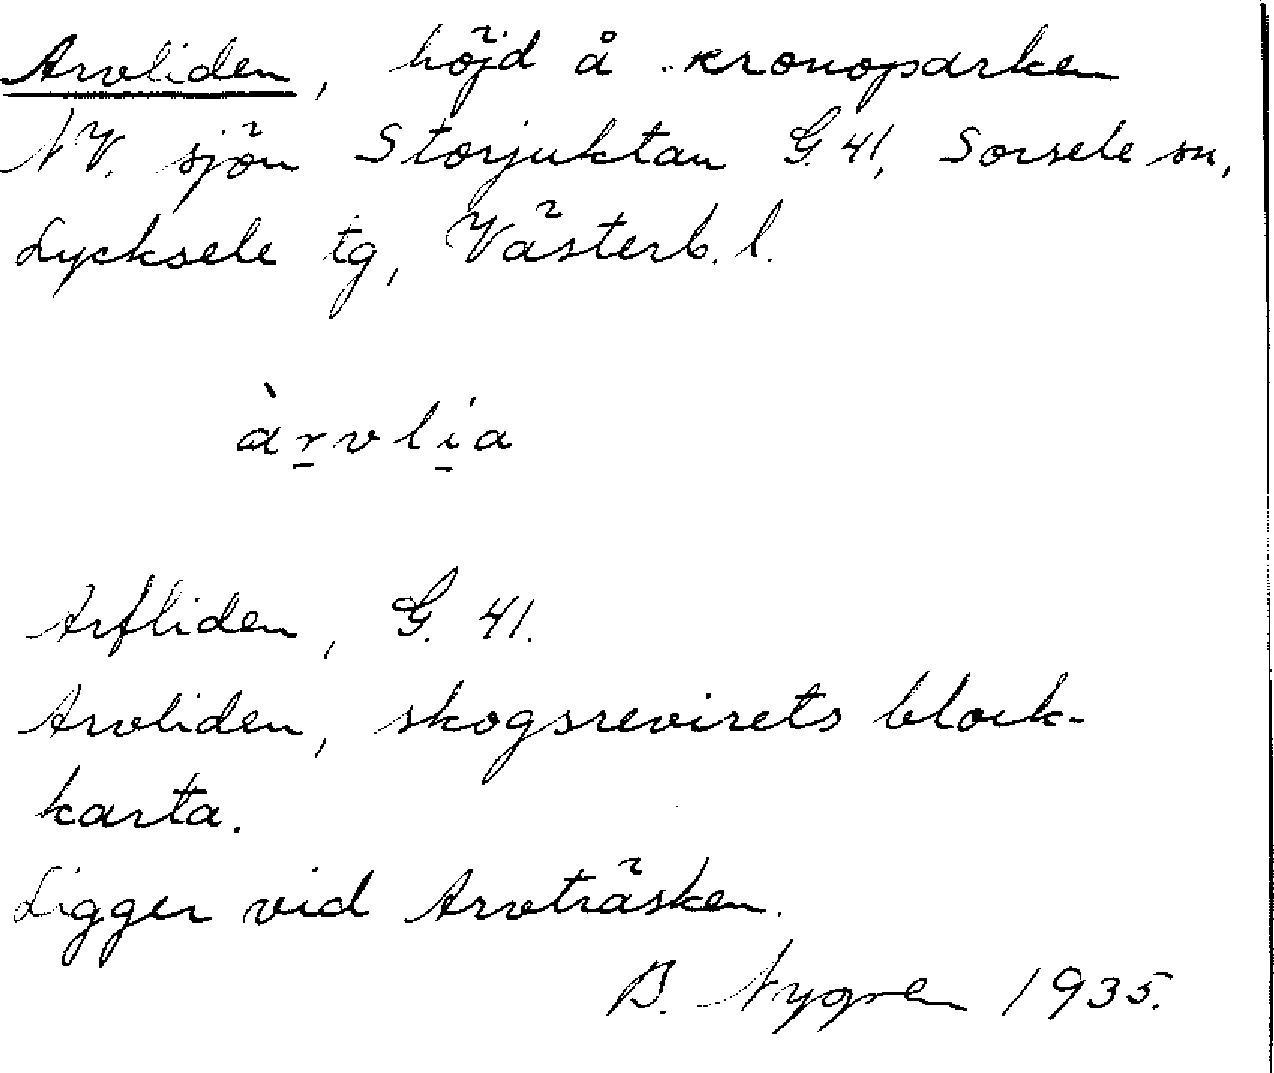 Arvliden, höjd å kronoparken
NV. sjön Storjuktan G. 41, Sorsele sn,
Lycksele tg, Västerb. l.
àr̲vli̲a
Arfliden, G. 41.
Arvliden, skogsrevirets block-
karta.
Ligger vid Arvträsken.
B. Nygren 1935.